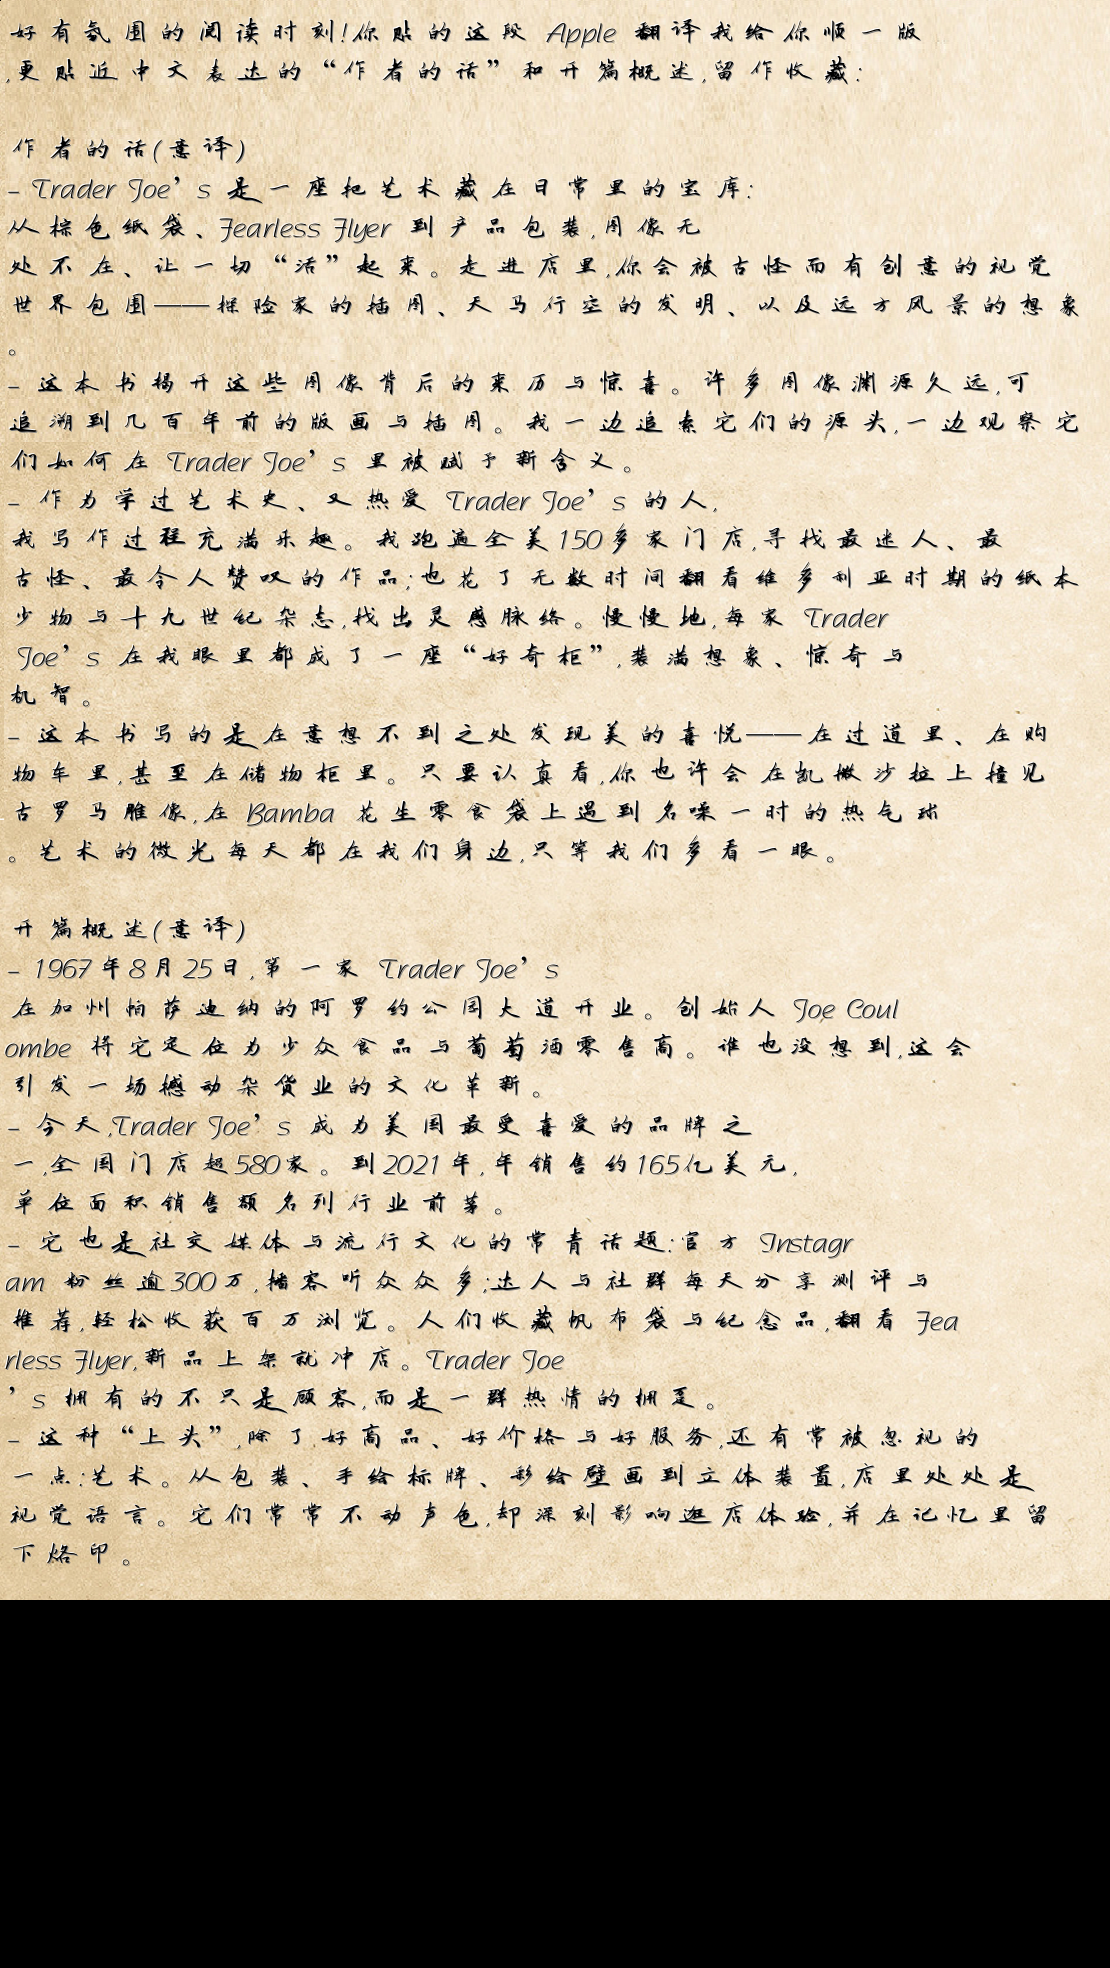 好有氛围的阅读时刻!你贴的这段 Apple 翻译我给你顺一版
,更贴近中文表达的“作者的话”和开篇概述,留作收藏:
作者的话(意译)
- Trader Joe’s 是一座把艺术藏在日常里的宝库:
从棕色纸袋、Fearless Flyer 到产品包装,图像无
处不在、让一切“活”起来。走进店里,你会被古怪而有创意的视觉
世界包围——探险家的插图、天马行空的发明、以及远方风景的想象
。
- 这本书揭开这些图像背后的来历与惊喜。许多图像渊源久远,可
追溯到几百年前的版画与插图。我一边追索它们的源头,一边观察它
们如何在 Trader Joe’s 里被赋予新含义。
- 作为学过艺术史、又热爱 Trader Joe’s 的人,
我写作过程充满乐趣。我跑遍全美150多家门店,寻找最迷人、最
古怪、最令人赞叹的作品;也花了无数时间翻看维多利亚时期的纸本
少物与十九世纪杂志,找出灵感脉络。慢慢地,每家 Trader
Joe’s 在我眼里都成了一座“好奇柜”,装满想象、惊奇与
机智。
- 这本书写的是在意想不到之处发现美的喜悦——在过道里、在购
物车里,甚至在储物柜里。只要认真看,你也许会在凯撒沙拉上撞见
古罗马雕像,在 Bamba 花生零食袋上遇到名噪一时的热气球
。艺术的微光每天都在我们身边,只等我们多看一眼。
开篇概述(意译)
- 1967年8月25日,第一家 Trader Joe’s
在加州帕萨迪纳的阿罗约公园大道开业。创始人 Joe Coul
ombe 将它定位为少众食品与葡萄酒零售商。谁也没想到,这会
引发一场撼动杂货业的文化革新。
- 今天,Trader Joe’s 成为美国最受喜爱的品牌之
一,全国门店超580家。到2021年,年销售约165亿美元,
单位面积销售额名列行业前茅。
- 它也是社交媒体与流行文化的常青话题:官方 Instagr
am 粉丝逾300万,播客听众众多;达人与社群每天分享测评与
推荐,轻松收获百万浏览。人们收藏帆布袋与纪念品,翻看 Fea
rless Flyer,新品上架就冲店。Trader Joe
’s 拥有的不只是顾客,而是一群热情的拥趸。
- 这种“上头”,除了好商品、好价格与好服务,还有常被忽视的
一点:艺术。从包装、手绘标牌、彩绘壁画到立体装置,店里处处是
视觉语言。它们常常不动声色,却深刻影响逛店体验,并在记忆里留
下烙印。